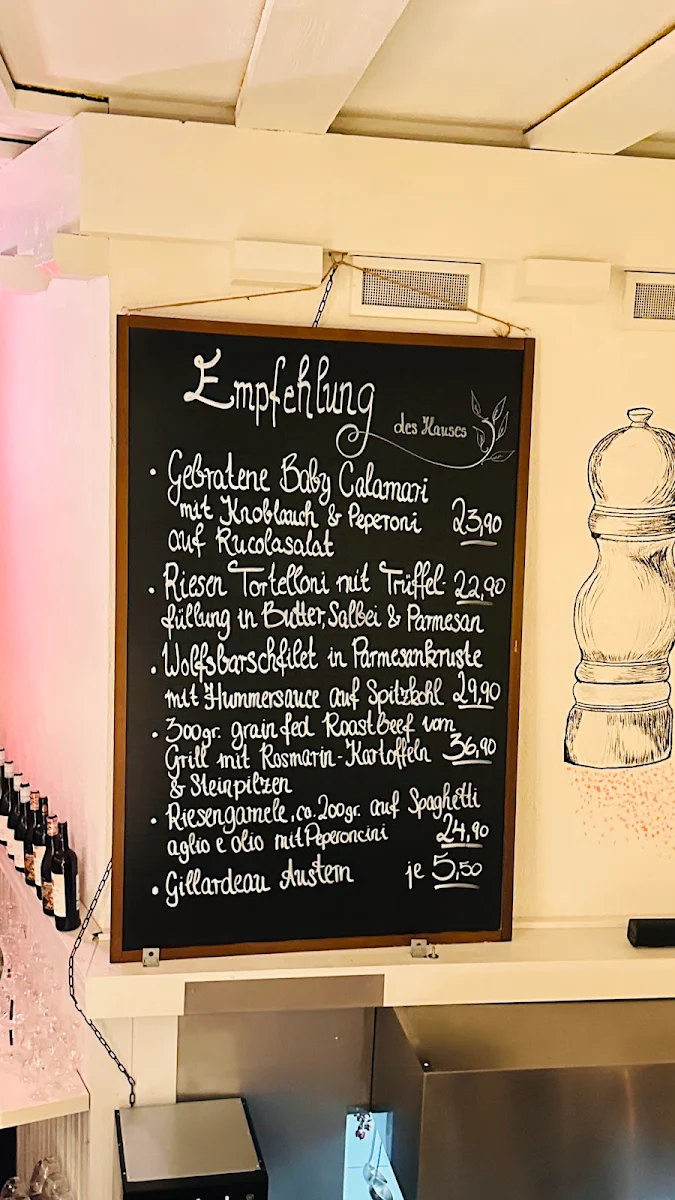 Empfehlung
des Hauses
• Gebratene Baby Calamari
mit Knoblauch & Peperoni 23,90
auf Rucolasalat
• Riesen Tortelloni mit Trüffel- 22,90
füllung in Butter, Salbei & Parmesan
• Wolfsbarschfilet in Parmesankruste
mit Hummersauce auf Spitzkohl 29,90
• 300gr. grain fed Roastbeef vom
Grill mit Rosmarin-Kartoffeln 36,90
& Steinpilzen
• Riesengarnele, ca. 200gr. auf Spaghetti
aglio e olio mit Peperoncini 24,90
• Gillardeau Austern je 5,50